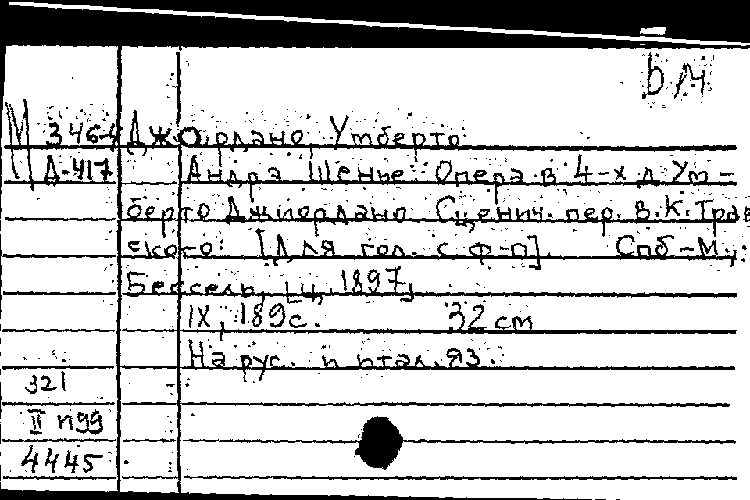 ЬМ
М 346-4 Джиордано, Умберто
Д-417 Андра Шенье. Опера в 4-х д. Ум-
берто Джиордано. Сценич. пер. В.К. Трав
ского. [Для гол. с ф-п]. Спб-М.:
Бессель, [ц. 1897]
IX, 189с. 32 cm
На рус. и итал. яз.
321
II п99
4445